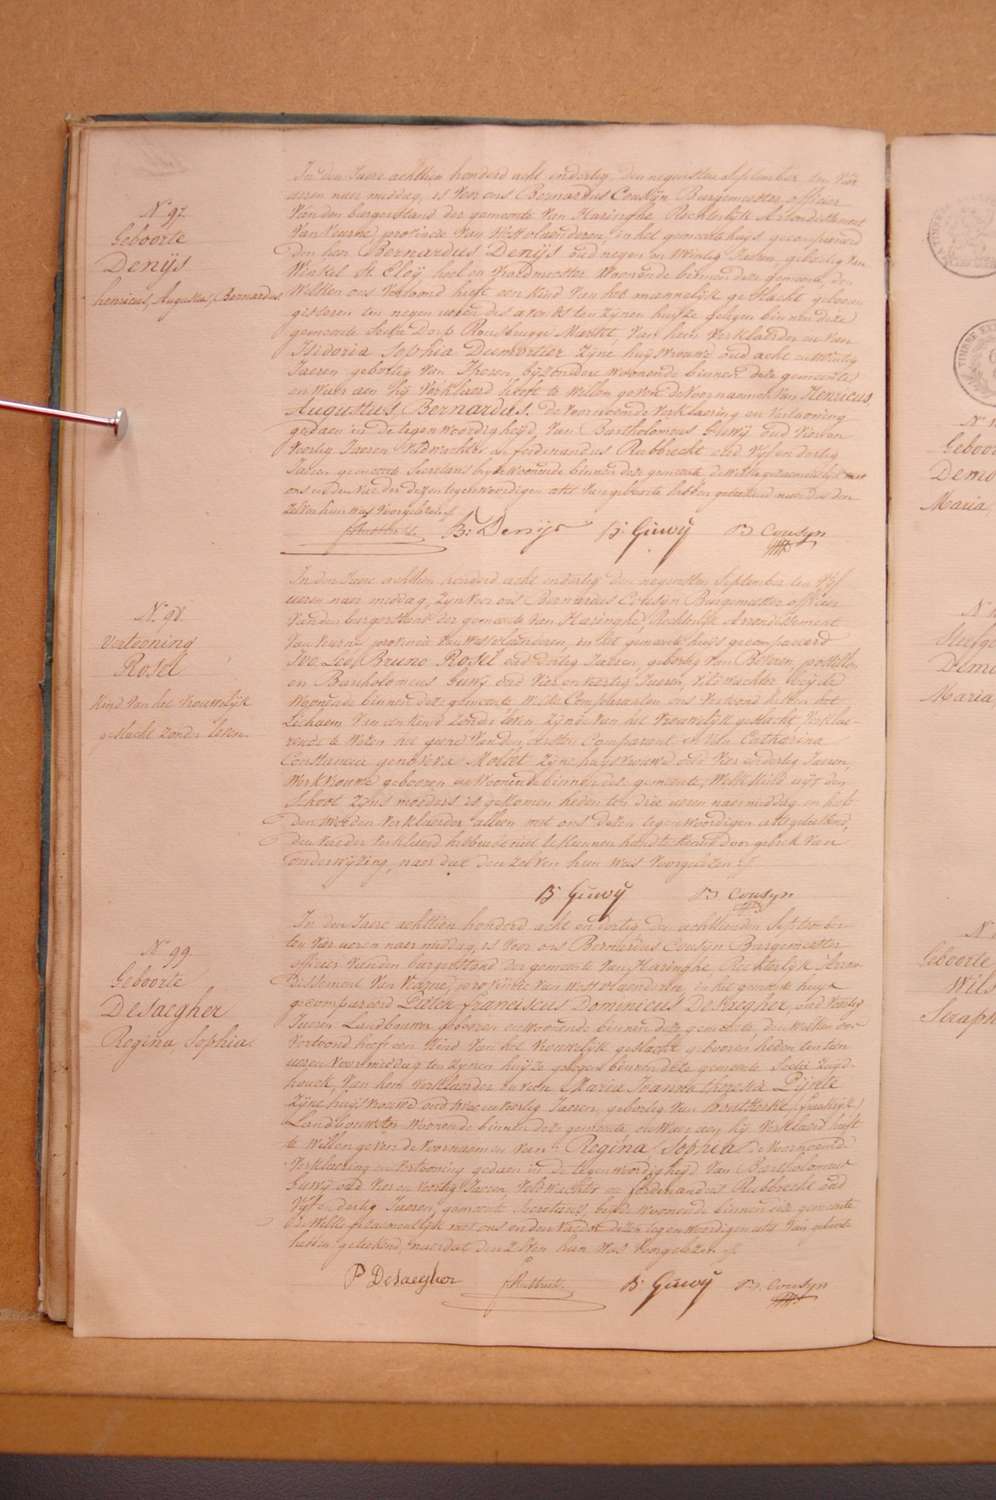 N.º 97.
Geboorte
Denijs
henricus, Augustus, Bernardus
In den Jaere achttien honderd acht en dertig, den negensten September ten vier
ueren naer middag, is voor ons Bernardus Cousijn Burgemeester, officier
van den burgerstand der gemeente van Haringhe, Rechterlijke Arrondissement
van Veurne, provincie van Westvlaenderen, in het gemeente huys gecompareerd
den heer Bernardus Denijs oud negen en twintig Jaeren, geboortig van
Winkel St. Eloÿ, heel en vroedmeester woonende binnen deze gemeente, den
welken ons vertoond heeft een kind van het mannelijk geslacht geboren
gisteren ten negen ueren des avonds ten zijnen huyse gelegen binnen deze
gemeente Sectie Dorp Rousbrugge Markt, van hem verklaerder en van
Isidoria Sophia Desmyttier zijne huysvrouwe oud acht en twintig
Jaeren geboortig van Iperen, bijzondere woonende binnen deze gemeente
en waer aen hij verklaerd heeft te willen geven de voornaemen van Henricus
Augustus, Bernardus. De voornoemde verklaering en vertooning
gedaen in de tegenwoordigheijd van Bartholomeus Guwij oud vier en
veertig Jaeren veldwachter en ferdinandus Rubbrecht oud vijf en dertig
Jaeren gemeente secretaris beyde woonende binnen deze gemeente de welke gezamentlijk met
ons en den vader dezen tegenwoordigen akt van geboorte hebben geteekend naer dat den
zelven hun was voorgelezen ./.
f. Rubbrecht B: Denijs B: Guwij B Cousyn
N.º 98.
Vertooning
Rosel
Kind van het vrouwelijk
geslacht zonder leven
In den Jaere achttien honderd acht en dertig den negensten September ten vijf
ueren naer middag, zijn voor ons Bernardus Cousijn Burgemeester officier
van den burgerstand der gemeente van Haringhe, Rechterlijk Arrondissement
van Veurne provincie van Westvlaenderen, in het gemeente huys gecompareerd
Ivo Leo Bruno Rosel oud dertig Jaeren, geboortig van Beveren, postillon
en Bartholomeus Guwij oud vier en veertig Jaeren veldwachter beyde
woonende binnen deze gemeente Welke Comparanten ons vertoond hebben het
Lichaem van een kind zonder leven zijnde van het vrouwelijk geslacht verklae-
rende te weten het gene van den eersten Comparant en van Catharina
Constancia genoveva Mortet zijne huysvrouwe oud vier en dertig Jaeren,
werkvrouwe geboren en woonende binnen deze gemeente, Welk kind uyt den
schoot zijns moeders is gekomen heden ten drie ueren naer middag en heeft
den tweeden verklaerder alleen met ons dezen tegenwoordigen akt geteekend,
den vader verklaerd hebbende niet te kunnen handteekenen door gebrek van
onderwijzing, naer dat den zelven hun was voorgelezen ./.
B: Guwij B Cousyn
N.º 99.
Geboorte
Desaegher
Regina, Sophia.
In den Jaere achttien honderd acht en dertig den achttienden September
ten vier ueren naer middag, is voor ons Bernardus Cousijn Burgemeester
officier van den burgerstand der gemeente van Haringhe, Rechterlijk Arron-
dissement van Veurne, provincie van Westvlaenderen, in het gemeente huys
gecompareerd Pieter franciscus Dominicus Desaegher, oud veertig
Jaeren Landbouwer geboren en woonende binnen deze gemeente, den welken ons
vertoond heeft een kind van het vrouwelijk geslacht geboren heden ten tien
ueren voormiddag ten zijnen huyze gelegen binnen deze gemeente Sectie Zuyd-
houck, van hem verklaerder en van Maria Joanna theresia Pijnte
zijne huysvrouwe oud twee en veertig Jaeren, geboortig van (frankrijk)
Landbouwster woonende binnen deze gemeente en waer aen hij verklaerd heeft
te willen geven de voornaemen van Regina, Sophia, de voornoemde
verklaering en vertooning gedaen in de tegenwoordigheyd van Bartholomeus
Guwij oud vier en veertig Jaeren, veldwachter en ferdinandus Rubbrecht oud
vijf en dertig Jaeren, gemeente secretaris, beyde woonende binnen deze gemeente
de welke gezamentlijk met ons en den vader dezen tegenwoordigen akt van geboorte
hebben geteekend, naer dat den zelven hun was voorgelezen ./.
P Desaegher f. Rubbrecht B: Guwij B Cousyn
Geboorte
Maria
Maria
Geboorte
Wils
Seraph